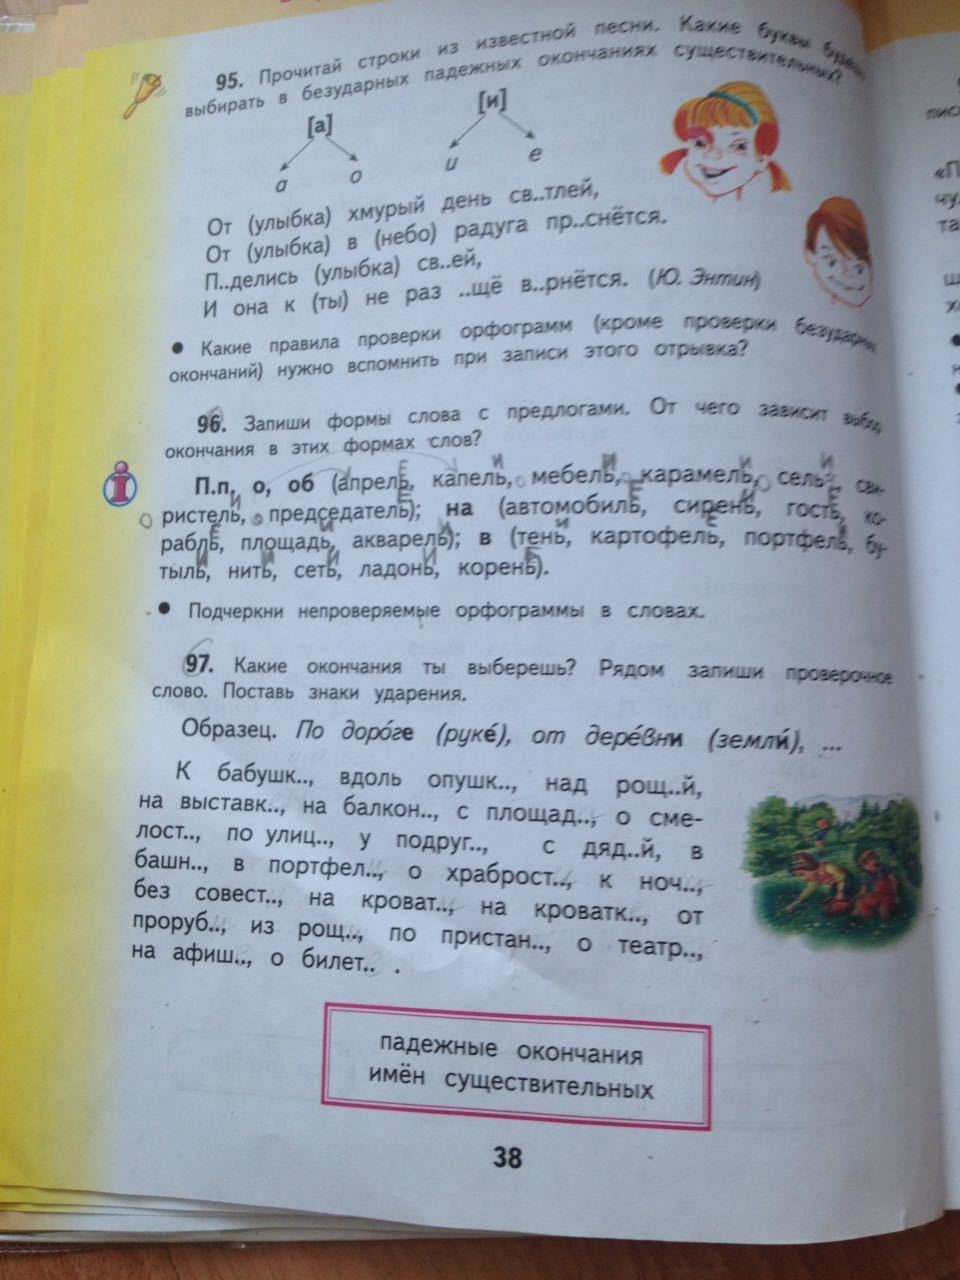 95. Прочитай строки из известной песни. Какие буквы будешь
выбирать в безударных падежных окончаниях существительных?
[а] [и]
а о и е
От (улыбка) хмурый день св..тлей,
От (улыбка) в (небо) радуга пр..снётся.
П..делись (улыбка) св..ей,
И она к (ты) не раз ..щё в..рнётся. (Ю. Энтин)
• Какие правила проверки орфограмм (кроме проверки безударных
окончаний) нужно вспомнить при записи этого отрывка?
96. Запиши формы слова с предлогами. От чего зависит выбор
окончания в этих формах слов?
П.п. о, об (апрель, капель, мебель, карамель, сель, сви-
ристель, председатель); на (автомобиль, сирень, гость, ко-
рабль, площадь, акварель); в (тень, картофель, портфель, бу-
тыль, нить, сеть, ладонь, корень).
• Подчеркни непроверяемые орфограммы в словах.
97. Какие окончания ты выберешь? Рядом запиши проверочное
слово. Поставь знаки ударения.
Образец. По доро́ге (руке́), от дере́вни (земли́), ...
К бабушк.., вдоль опушк.., над рощ..й,
на выставк.., на балкон.., с площад.., о сме-
лост.., по улиц.., у подруг.., с дяд..й, в
башн.., в портфел.., о храброст.., к ноч..,
без совест.., на кроват.., на кроватк.., от
проруб.., из рощ.., по пристан.., о театр..,
на афиш.., о билет.. .
падежные окончания
имён существительных
38